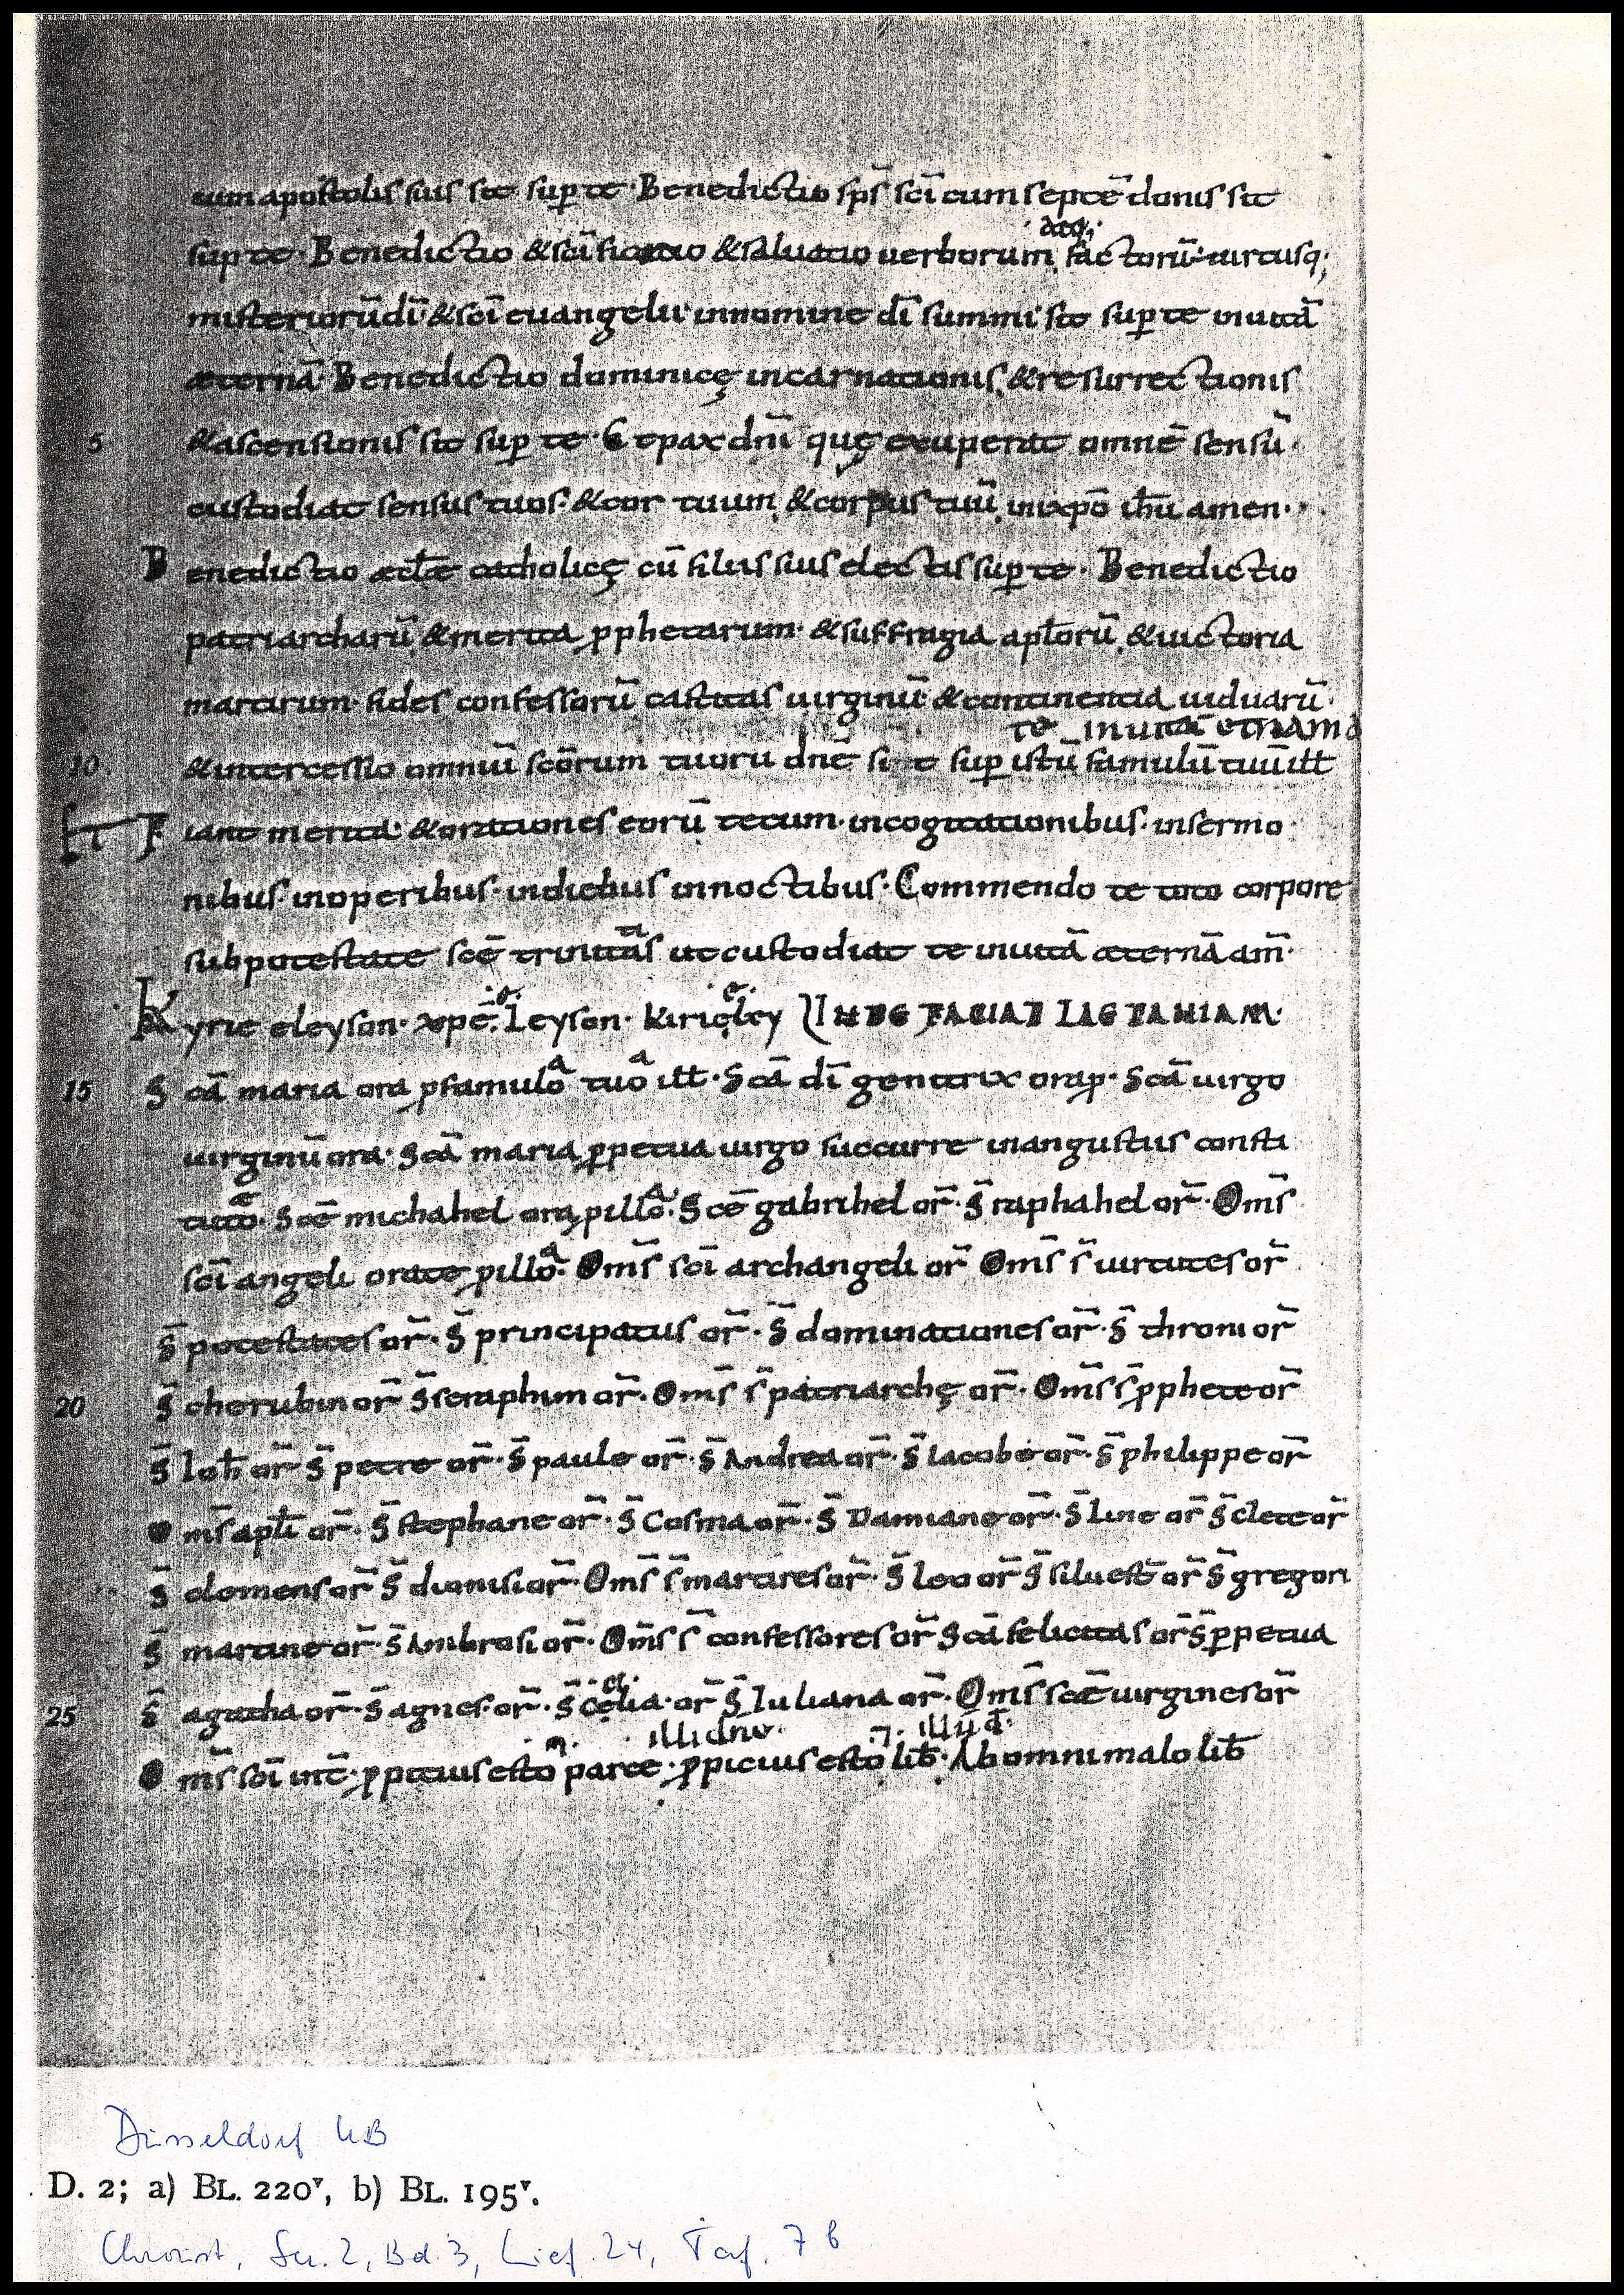 cum apostolis suis sit sup te · Benedictio sps̄ sc̄i cum septē donis sit
atq;
sup te · Benedictio & sc̄ificatio & saluatio uerborum factorū uirtusq;
misteriorū dī & sc̄i euangelii in nomine dī summi sit sup te in uitā
æternā · Benedictio dominicę incarnationis, & resurrectionis
5 & ascensionis sit sup te · Et pax dn̄i quę exuperat omnē sensū ·
custodiat sensus tuos · & cor tuum, & corpus tuū, in xp̄o ih̄u amen ·
Benedictio æcl̄æ catholicę cū filiis suis electis sup te · Benedictio
patriarcharū, & merita pphetarum · & suffragia apl̄orū, & uictoria
martirum · fides confessorū castitas uirginū · & continentia uiduarū ·
te in uitā etnam
10 & intercessio omniū sc̄orum tuorū dn̄e si t sup istū famulū tuū ill̄
Et Fiant merita · & orationes eorū tecum · in cogitationibus · in sermo
nibus · in operibus · in diebus in noctibus · Commendo te toto corpore
ta
sub potestate sc̄e trinitās ut custodiat te in uitā æternā am̄ ·
e e
Kyrie eleyson · xp̄e leyson · Kirieley INDE FACIAT LAETANIAM ·
a a
15 Sc̄a maria ora p famulo tuo ill̄ · Sc̄a dī genitrix ora p · Sc̄a uirgo
uirginū ora · Sc̄a maria ppetua uirgo succurre in angustiis consti
tuto · Sc̄e michahel ora p illo · Sc̄e gabrihel or̄ · S̄ raphahel or̄ · Om̄s
a
sc̄i angeli orate p illo · Om̄s sc̄i archangeli or̄ Om̄s s̄ uirtutes or̄
S̄ potestates or̄ · S̄ principatus or̄ · S̄ dominationes or̄ · S̄ throni or̄
20 S̄ cherubin or̄ S̄ seraphim or̄ · Om̄s s̄ patriarchę or̄ · Om̄s s̄ pphete or̄
S̄ Ioh̄ or̄ S̄ petre or̄ · S̄ paule or̄ · S̄ Andrea or̄ · S̄ Iacobe or̄ · S̄ philippe or̄
Om̄s apl̄i or̄ · S̄ stephane or̄ · S̄ Cosma or̄ · S̄ Damiane or̄ · S̄ Line or̄ S̄ clete or̄
S̄ clemens or̄ S̄ dionisi or̄ · Om̄s s̄ martires or̄ · S̄ leo or̄ S̄ siluest̄ or̄ S̄ gregori
S̄ martine or̄ · S̄ Ambrosi or̄ · Om̄s s̄ confessores or̄ Sc̄a felicitas or̄ S̄ ppetua
25 S̄ agatha or̄ · S̄ agnes · or̄ · S̄ Celia · or̄ S̄ Iuliana or̄ · Om̄s sc̄æ uirgines or̄
illi dn̄e · illū d̄ ·
Om̄s sc̄i int̄ · ppitius esto parce · ppicius esto lib̄ · Ab omni malo lib̄
Düsseldorf UB
D. 2; a) BL. 220v, b) BL. 195v.
Chroust, Ser. 2, Bd. 3, Lief. 24, Taf. 7 b